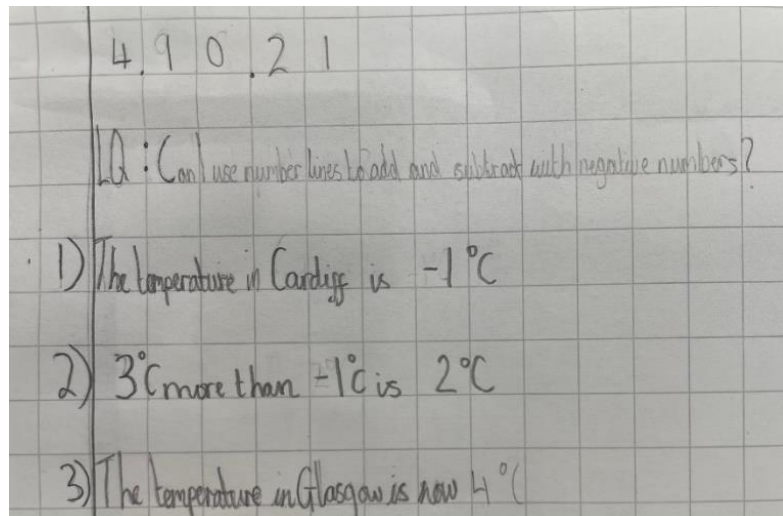 4.90.21
LQ: Can I use number lines to add and subtract with negative numbers?
1) The temperature in Cardiff is -1°C
2) 3°C more than -1°C is 2°C
3) The temperature in Glasgow is now 4°C